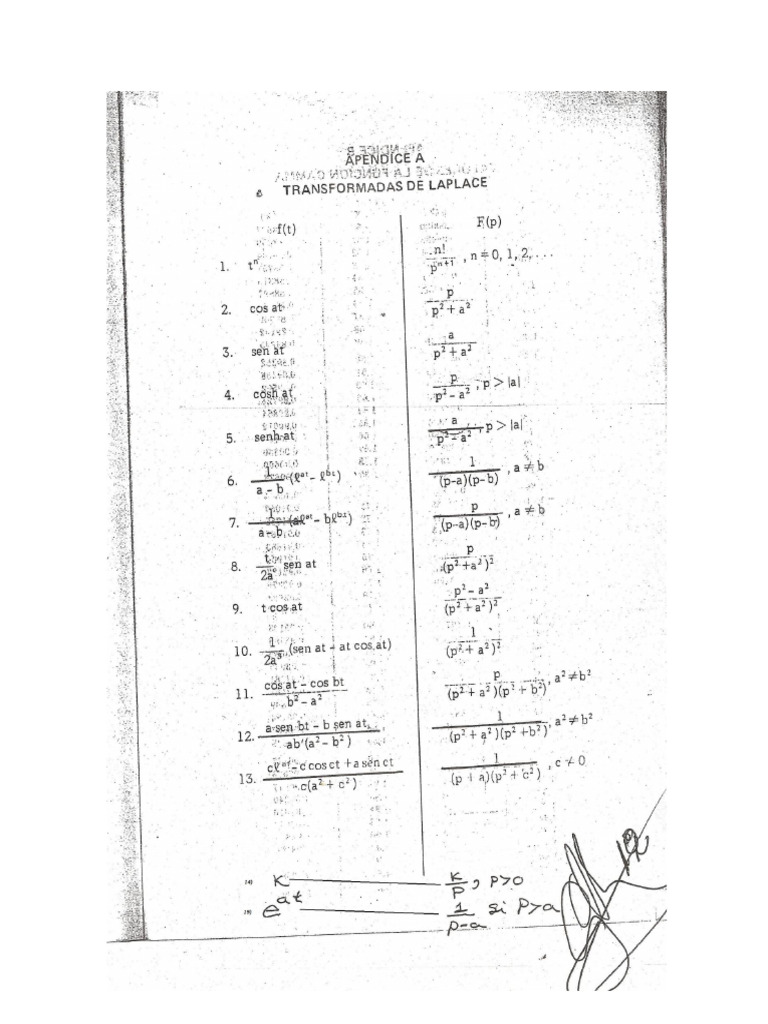 APENDICE A
TRANSFORMADAS DE LAPLACE
f(t) F(p)
1. tⁿ n!/pⁿ⁺¹ , n = 0, 1, 2, . . .
2. cos at p/(p² + a²)
3. sen at a/(p² + a²)
4. cosh at p/(p² – a²) , p > |a|
5. senh at a/(p² – a²) , p > |a|
6. 1/(a – b) (ℓᵃᵗ – ℓᵇᵗ) 1/((p–a)(p–b)) , a ≠ b
7. 1/(a – b) (aℓᵃᵗ – bℓᵇᵗ) p/((p–a)(p–b)) , a ≠ b
8. t/2a sen at p/(p² + a²)²
9. t cos at (p² – a²)/(p² + a²)²
10. 1/2a³ (sen at – at cos at) 1/(p² + a²)²
11. (cos at – cos bt)/(b² – a²) p/((p² + a²)(p² + b²)) , a² ≠ b²
12. (a sen bt – b sen at)/(ab (a² – b²)) 1/((p² + a²)(p² + b²)) , a² ≠ b²
13. (cℓᵃᵗ – c cos ct + a sen ct)/(c(a² + c²)) 1/((p + a)(p² + c²)) , c ≠ 0
14) K K/P , P>0
15) eᵃᵗ 1/(p-a) si P>a